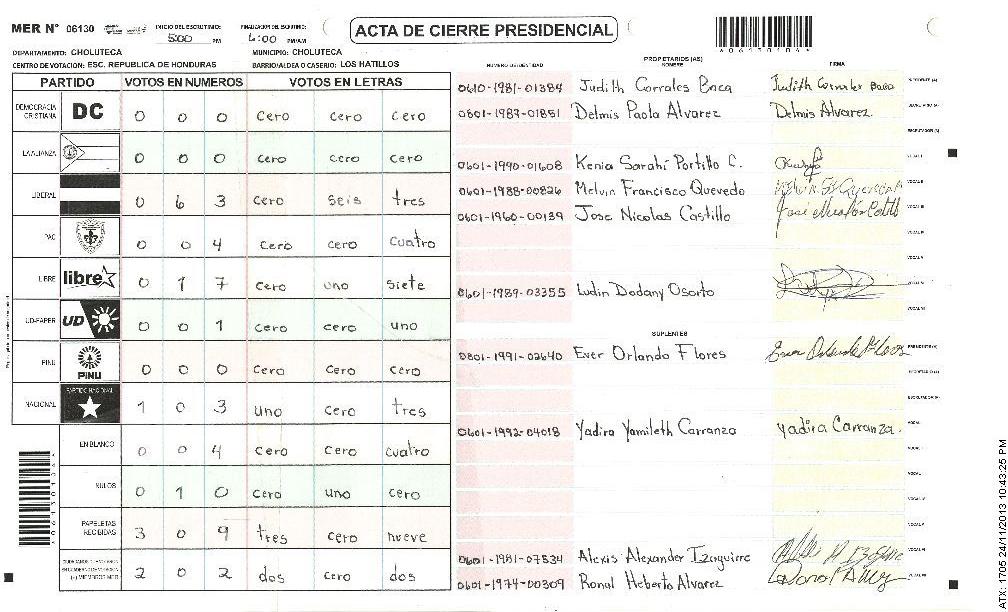 MER N° 06130 INICIO DEL ESCRUTINIO: 5:00 PM FINALIZACION DEL ESCRUTINIO: 6:00 PM/AM
ACTA DE CIERRE PRESIDENCIAL
DEPARTAMENTO: CHOLUTECA MUNICIPIO: CHOLUTECA
CENTRO DE VOTACION: ESC. REPUBLICA DE HONDURAS BARRIO/ALDEA O CASERIO: LOS HATILLOS
PARTIDO VOTOS EN NUMEROS VOTOS EN LETRAS
DEMOCRACIA CRISTIANA DC 0 0 0 cero cero cero
LA ALIANZA 0 0 0 cero cero cero
LIBERAL 0 6 3 cero seis tres
PAC 0 0 4 cero cero cuatro
LIBRE libre 0 1 7 cero uno siete
UD-FAPER UD 0 0 1 cero cero uno
PINU PINU 0 0 0 cero cero cero
NACIONAL PARTIDO NACIONAL 1 0 3 uno cero tres
EN BLANCO 0 0 4 cero cero cuatro
NULOS 0 1 0 cero uno cero
PAPELETAS RECIBIDAS 3 0 9 tres cero nueve
(+) MIEMBROS MER 2 0 2 dos cero dos
NUMERO DE IDENTIDAD PROPIETARIOS (AS) NOMBRE FIRMA
0610-1981-01384 Judith Corrales Baca Judith Corrales Baca
0601-1989-01851 Delmis Paola Alvarez Delmis Alvarez.
0601-1990-01608 Kenia Sarahí Portillo C.
0601-1988-00826 Melvin Francisco Quevedo
0601-1960-00139 Jose Nicolas Castillo
0601-1989-03355 Ludin Dodany Osorto
SUPLENTES
0801-1991-02640 Ever Orlando Flores
0601-1992-04018 Yadira Yamileth Carranza Yadira Carranza.
0601-1981-07534 Alexis Alexander Izaguirre
0601-1974-00309 Ronal Heberto Alvarez
ATX: 1705 24/11/2013 10:43:25 PM